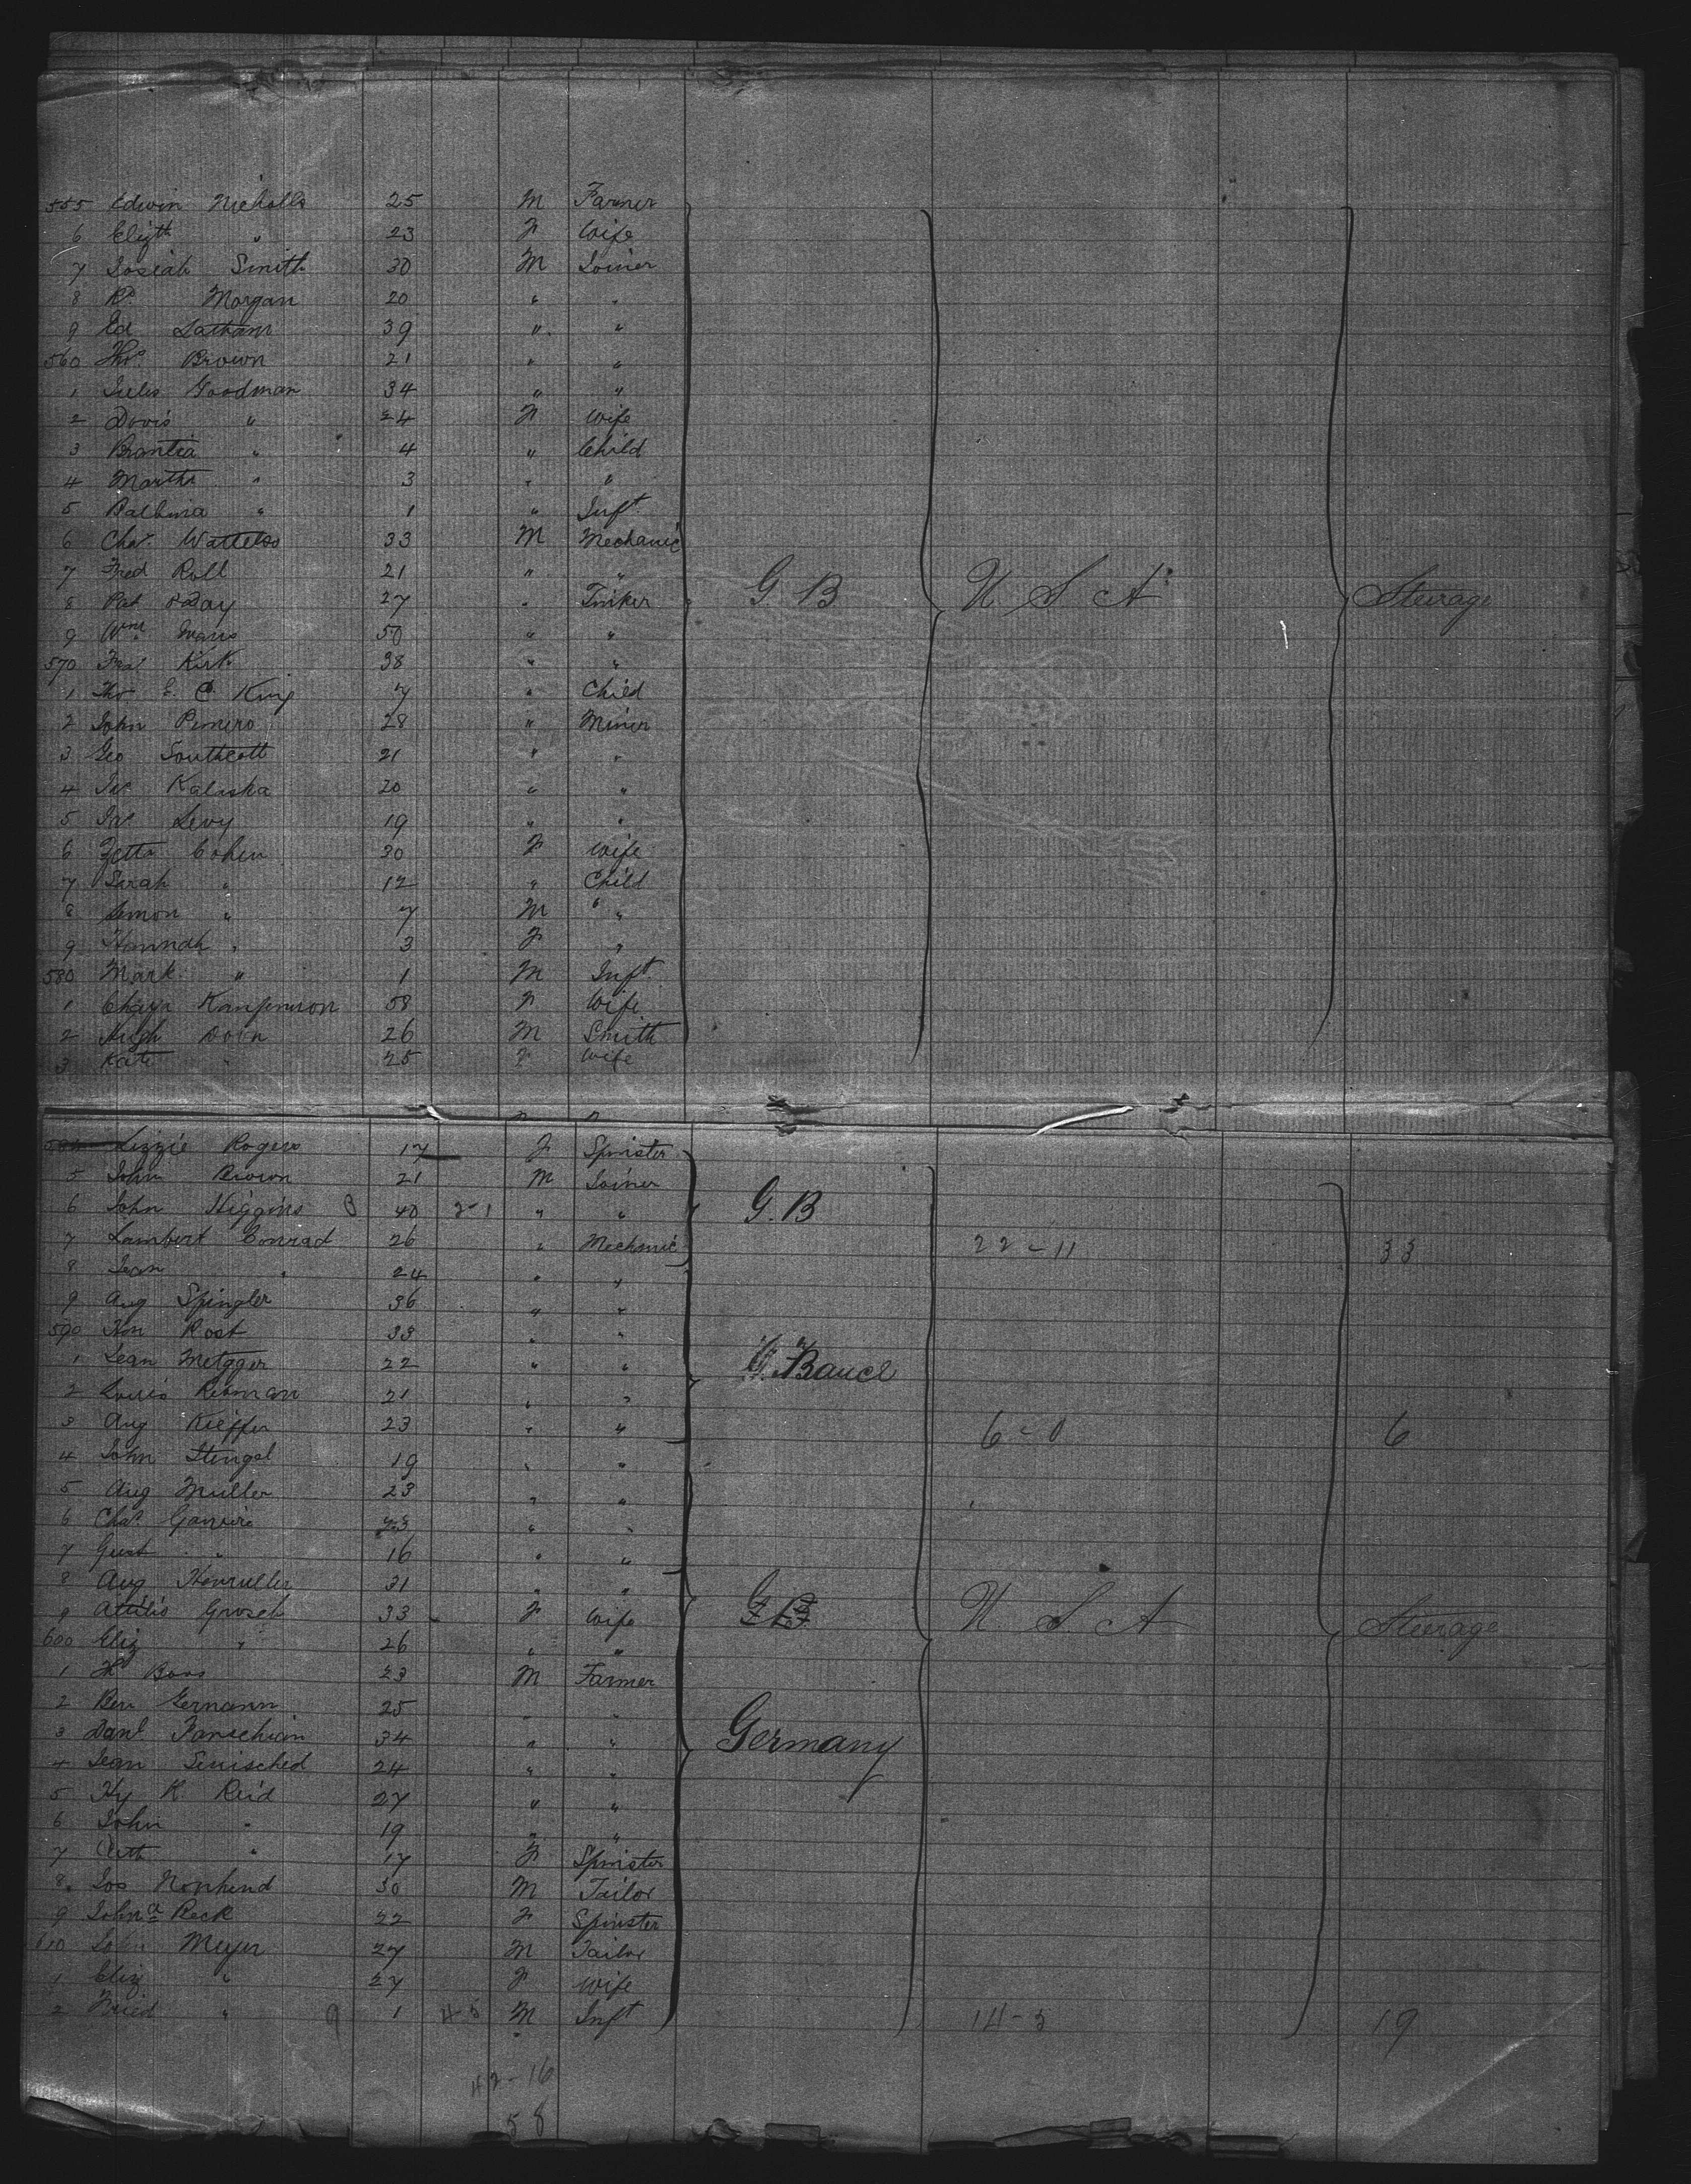 555 Edwin Nicholls 25 M Farmer
6 Elizth " 23 F Wife
7 Josiah Smith 30 M Joiner
8 Rd Morgan 20 " "
9 Ed Latham 39 " "
560 Thos Brown 21 " "
1 Jules Goodman 34 " "
2 Doris " 24 F Wife
3 " 4 " Child
4 Martha " 3 " "
5 Balbina " 1 " Inft
6 Chas 33 M Mechanic
7 Fred Roll 21 " "
8 Pat 27 " Tinker G B U S A Steerage
9 Wm Evans 50 " "
570 Fras Kirk 38 " "
1 Tho E. C. King 7 " Child
2 John 28 " Miner
3 Geo Southcott 21 " "
4 Kaliska 20 " "
5 Levy 19 " "
6 Zetta Cohen 30 F Wife
7 Sarah " 12 " Child
8 Simon " 7 M " "
9 Hannah " 3 F "
580 Mark " 1 M Inft
1 Chaya 58 F Wife
2 Hugh 26 M Smith
3 Kate " 25 F Wife
584 Lizzie Rogers 17 F Spinster
5 John Brown 21 M Joiner
6 John Higgins 40 2-1 " " G. B
7 Lambert Conrad 26 " Mechanic 22-11 33
8 Jean " 24 " "
9 Aug Spingler 36 " "
590 Rost 33 " "
1 Jean Metzger 22 " "
2 Louis Rebman 21 " "
3 Aug Kieffer 23 " " 6-0 6
4 John Stengel 19 " "
5 Aug Muller 23 " "
6 Chas 23 " "
7 Gust " 16 " "
8 Aug 31 " "
9 Grosch 33 F Wife G B U. S. A Steerage
600 Eliz " 26 " "
1 23 M Farmer
2 Ben Germann 25 " "
3 Danl 34 " " Germany
4 Jean 24 " "
5 Hy K. Reid 27 " "
6 John " 19 " "
7 " 17 F Spinster
8 Jos 30 M Tailor
9 Johna Reck 22 F Spinster
610 John Meyer 27 M Tailor
1 Eliz " 27 F Wife
2 Fried " 9 1 4-5 M Inft 14-5 19
42-16
58